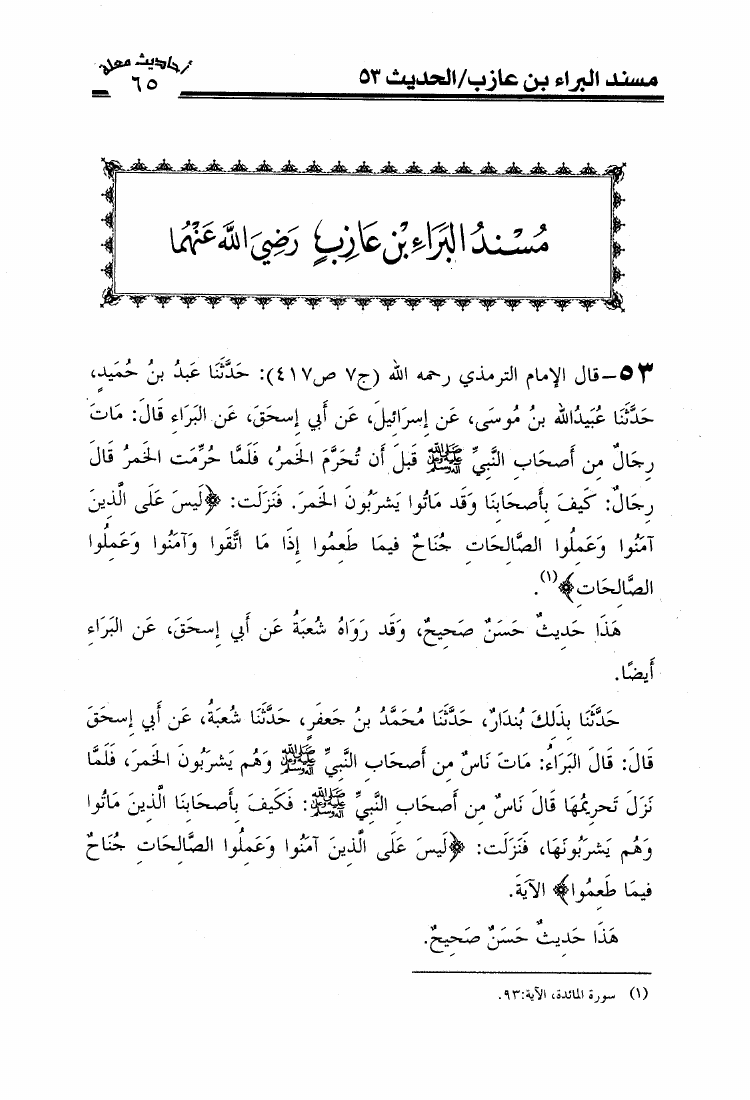 مسند البراء بن عازب/الحديث ٥٣
أحاديث معلة
٦٥
مُسْنَدُ البَرَاءِ بْنِ عَازِبٍ رَضِيَ اللَّهُ عَنْهُمَا
٥٣- قال الإمام الترمذي رحمه الله (ج٧ ص٤١٧): حَدَّثَنَا عَبدُ بنُ حُمَيدٍ،
حَدَّثَنَا عُبَيدُالله بنُ مُوسَى، عَن إِسرَائِيلَ، عَن أَبِي إِسحَقَ، عَن البَرَاءِ قَالَ: مَاتَ
رِجَالٌ مِن أَصحَابِ النَّبِيِّ ﷺ قَبلَ أَن تُحَرَّمَ الخَمرُ، فَلَمَّا حُرِّمَت الخَمرُ قَالَ
رِجَالٌ: كَيفَ بِأَصحَابِنَا وَقَد مَاتُوا يَشرَبُونَ الخَمرَ. فَنَزَلَت: ﴿لَيسَ عَلَى الَّذِينَ
آمَنُوا وَعَمِلُوا الصَّالِحَاتِ جُنَاحٌ فِيمَا طَعِمُوا إِذَا مَا اتَّقَوا وَآمَنُوا وَعَمِلُوا
الصَّالِحَاتِ﴾(١).
هَذَا حَدِيثٌ حَسَنٌ صَحِيحٌ، وَقَد رَوَاهُ شُعبَةُ عَن أَبِي إِسحَقَ، عَن البَرَاءِ
أَيضًا.
حَدَّثَنَا بِذَلِكَ بُندَارٌ، حَدَّثَنَا مُحَمَّدُ بنُ جَعفَرٍ، حَدَّثَنَا شُعبَةُ، عَن أَبِي إِسحَقَ
قَالَ: قَالَ البَرَاءُ: مَاتَ نَاسٌ مِن أَصحَابِ النَّبِيِّ ﷺ وَهُم يَشرَبُونَ الخَمرَ، فَلَمَّا
نَزَلَ تَحرِيمُهَا قَالَ نَاسٌ مِن أَصحَابِ النَّبِيِّ ﷺ: فَكَيفَ بِأَصحَابِنَا الَّذِينَ مَاتُوا
وَهُم يَشرَبُونَهَا، فَنَزَلَت: ﴿لَيسَ عَلَى الَّذِينَ آمَنُوا وَعَمِلُوا الصَّالِحَاتِ جُنَاحٌ
فِيمَا طَعِمُوا﴾ الآيَةَ.
هَذَا حَدِيثٌ حَسَنٌ صَحِيحٌ.
(١) سورة المائدة، الآية:٩٣.